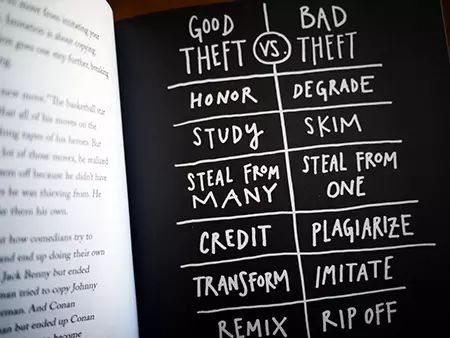 move from imitating your
Imitation is about copying.
goes one step further, breaking
new move." The basketball star
that all of his moves on the
tapes of his heroes. But
lot of those moves, he realized
them off because he didn't have
he was thieving from. He
them his own.
how comedians try to
and end up doing their own
Jack Benny but ended
tried to copy Johnny
And Conan
but ended up Conan
become
GOOD THEFT VS. BAD THEFT
HONOR DEGRADE
STUDY SKIM
STEAL FROM MANY STEAL FROM ONE
CREDIT PLAGIARIZE
TRANSFORM IMITATE
REMIX RIP OFF